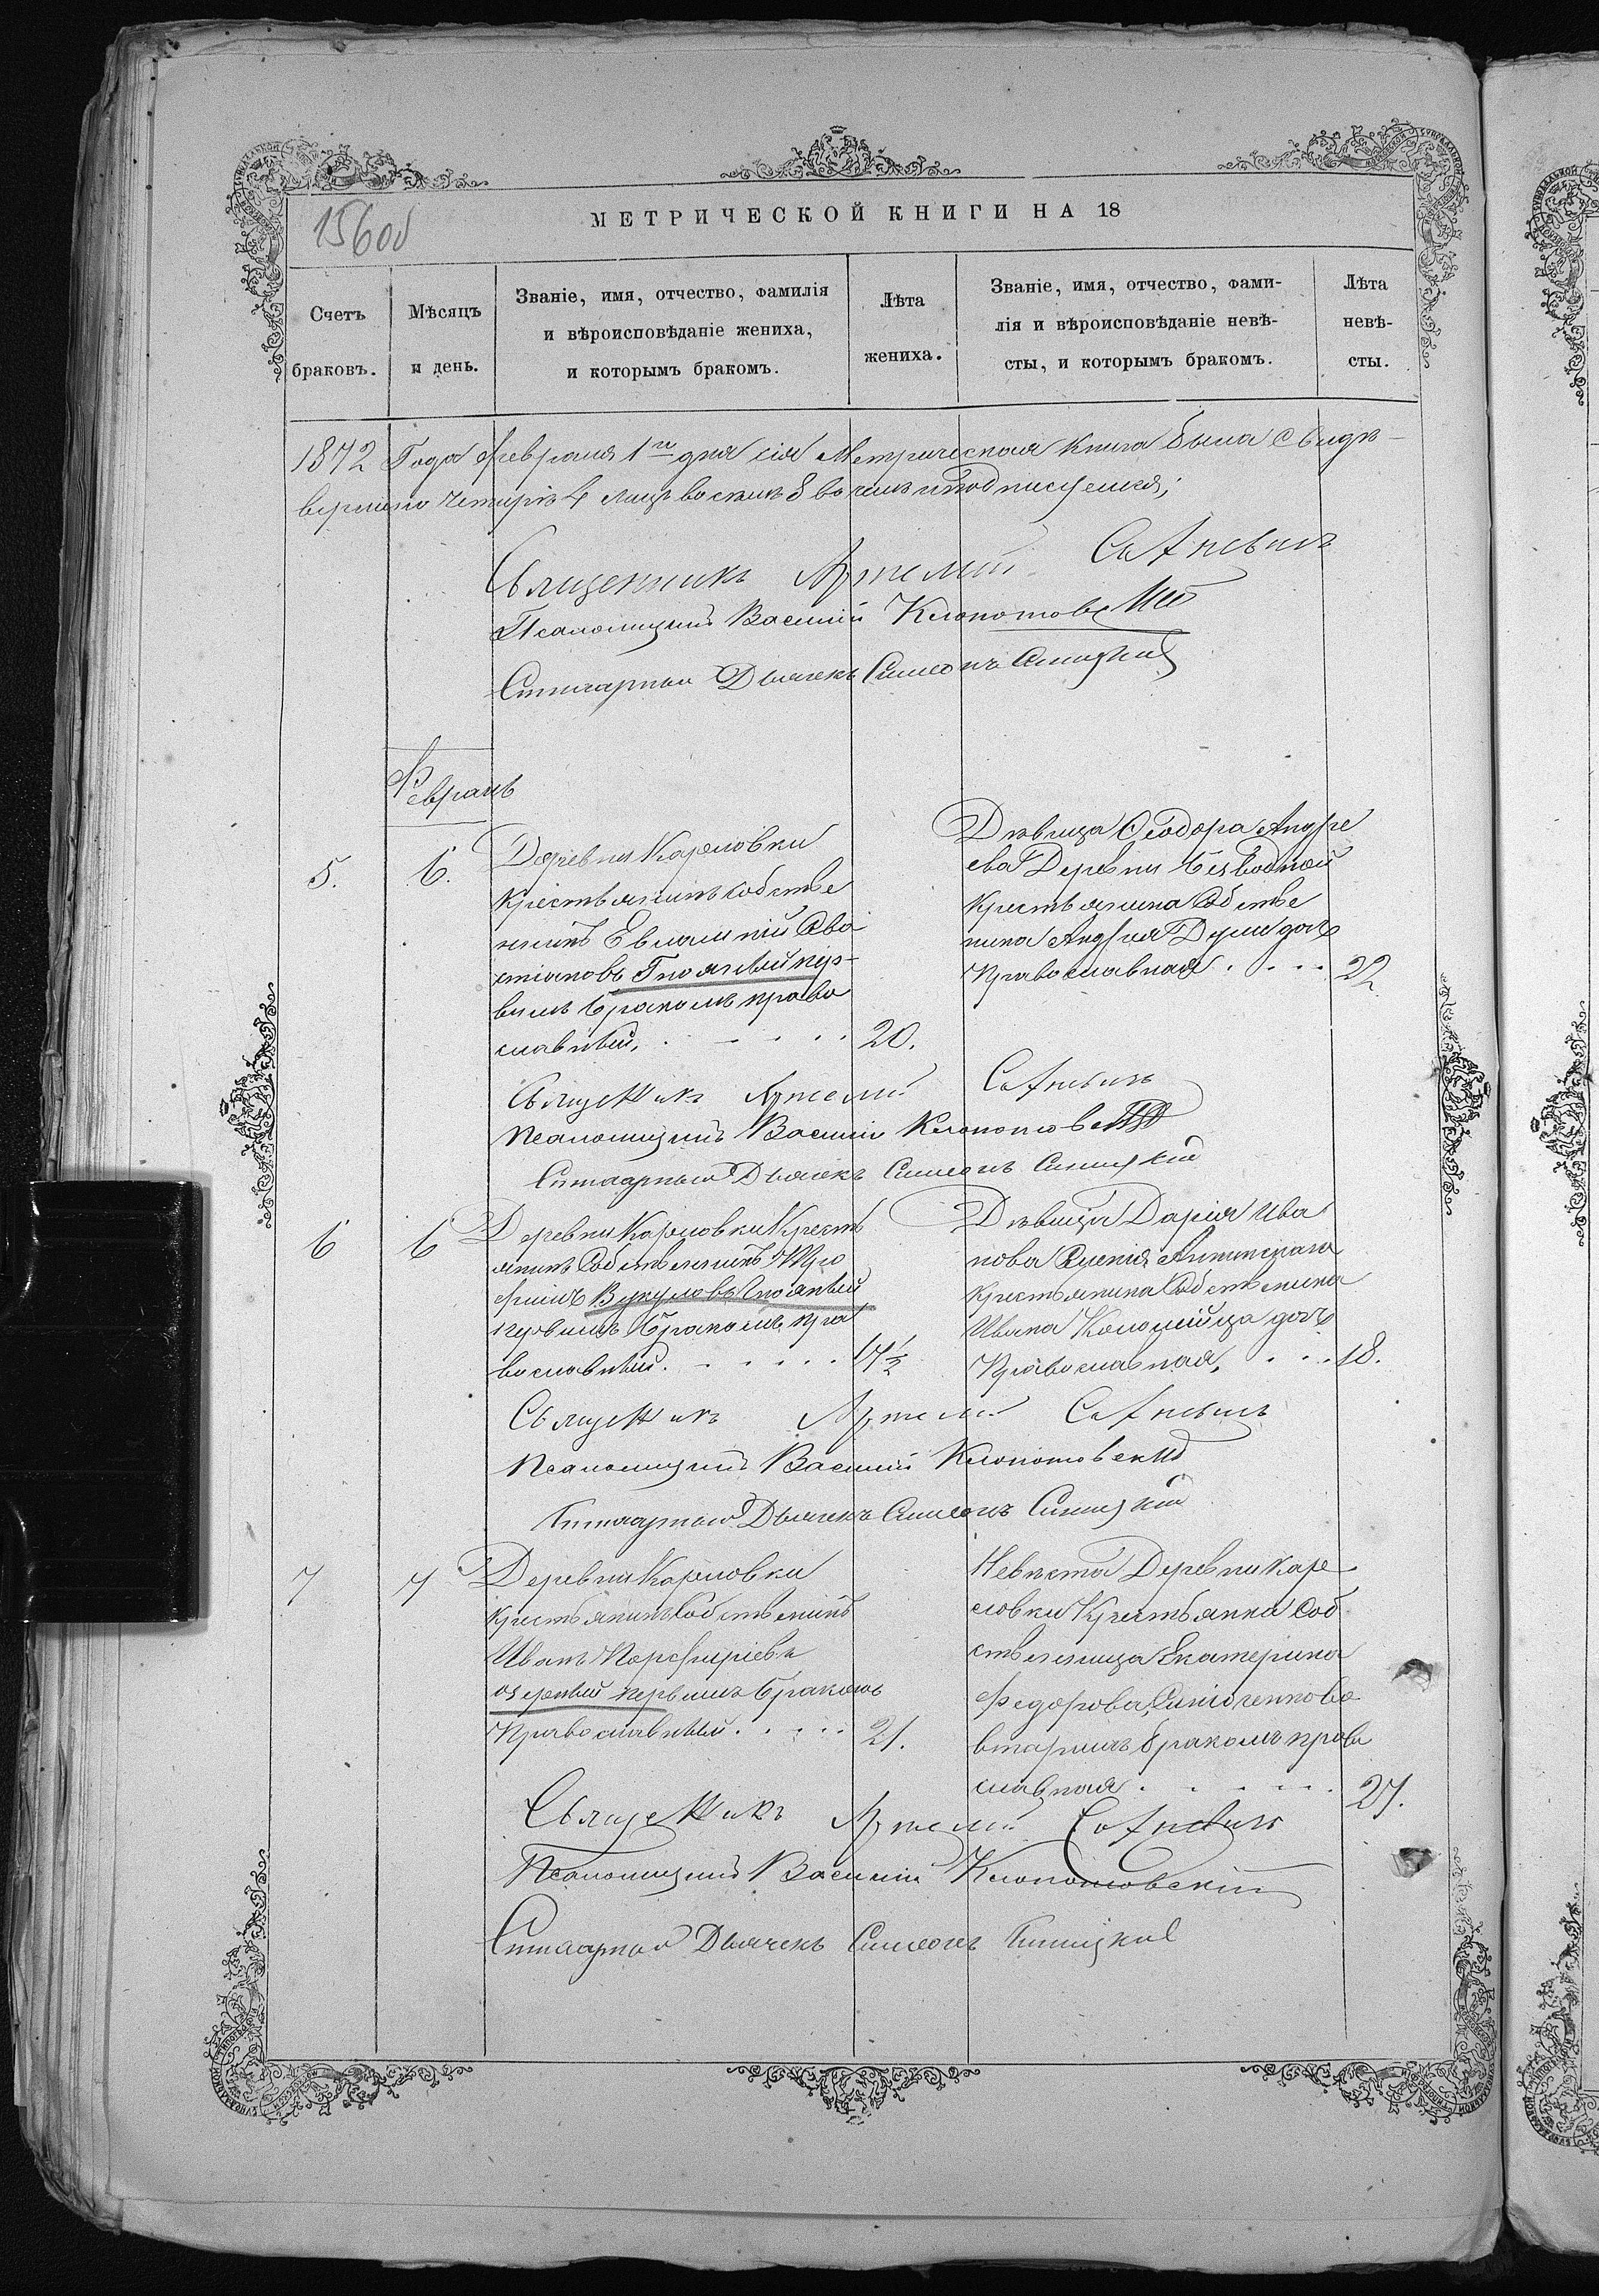 МЕТРИЧЕСКОЙ КНИГИ НА 18
1560об
Счетъ браковъ.
Мѣсяцъ и день.
Званіе, имя, отчество, фамилія
и вѣроисповѣданіе жениха,
и которымъ бракомъ.
Лѣта жениха.
Званіе, имя, отчество, фами-
лія и вѣроисповѣданіе невѣ-
сты, и которымъ бракомъ.
Лѣта невѣ-
сты.
1872 Года Февраля 1го дня сія Метрическая Книга была
4 8
Священникъ Артемій
Псаломщикъ Василій Клопотовскій
Дьячекъ Симеонъ Синицкій
Февраль
5.
6.
Деревни Карловки
Крестьянинъ собстве
нникъ Евлампій Сева
стіановъ Гноявый пер-
вымъ бракомъ право
славный.
20.
Дѣвица Ѳеодора Андре
ева Деревни Безводной
Крестьянина Собстве
ника Андрея дочь
Православная
22
Священникъ Артемій
Псаломщикъ Василій Клопотовскій
Дьячекъ Симеонъ Синицкій
6
6
Деревни Карловки Кресть
янинъ Собственникъ
Вукуловъ Гноявый
первымъ бракомъ пра
вославный.
17½
Дѣвица Дарія Ива
нова
крестьянина Собственника
Ивана Коломійца дочь
Православная,
18.
Священникъ Артемій
Псаломщикъ Василій Клопотовскій
Дьячекъ Симеонъ Синицкій
7
7
Деревни Карловки
Крестьянинъ Собственикъ
Иванъ Порфиріевъ
первымъ бракомъ
Православный.
21.
Невѣста Деревни Кар
ловки Крестьянка Соб
ственница Екатерина
Федорова
вторымъ бракомъ право
славная
27.
Священникъ Артемій
Псаломщикъ Василій Клопотовскій
Дьячекъ Симеонъ Синицкій